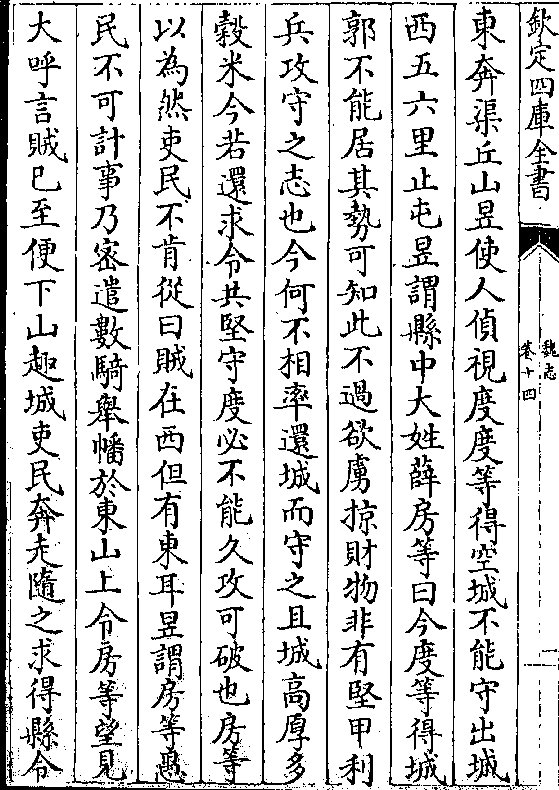 欽定四庫全書
魏志
卷十四
東奔渠丘山昱使人偵視度度等得空城不能守出城
西五六里止屯昱謂縣中大姓薛房等曰今度等得城
郭不能居其勢可知此不過欲虜掠財物非有堅甲利
兵攻守之志也今何不相率還城而守之且城高厚多
穀米今若還求令共堅守度必不能久攻可破也房等
以為然吏民不肯從曰賊在西但有東耳昱謂房等愚
民不可計事乃密遣數騎舉幡於東山上令房等望見
大呼言賊已至便下山趣城吏民奔走隨之求得縣令